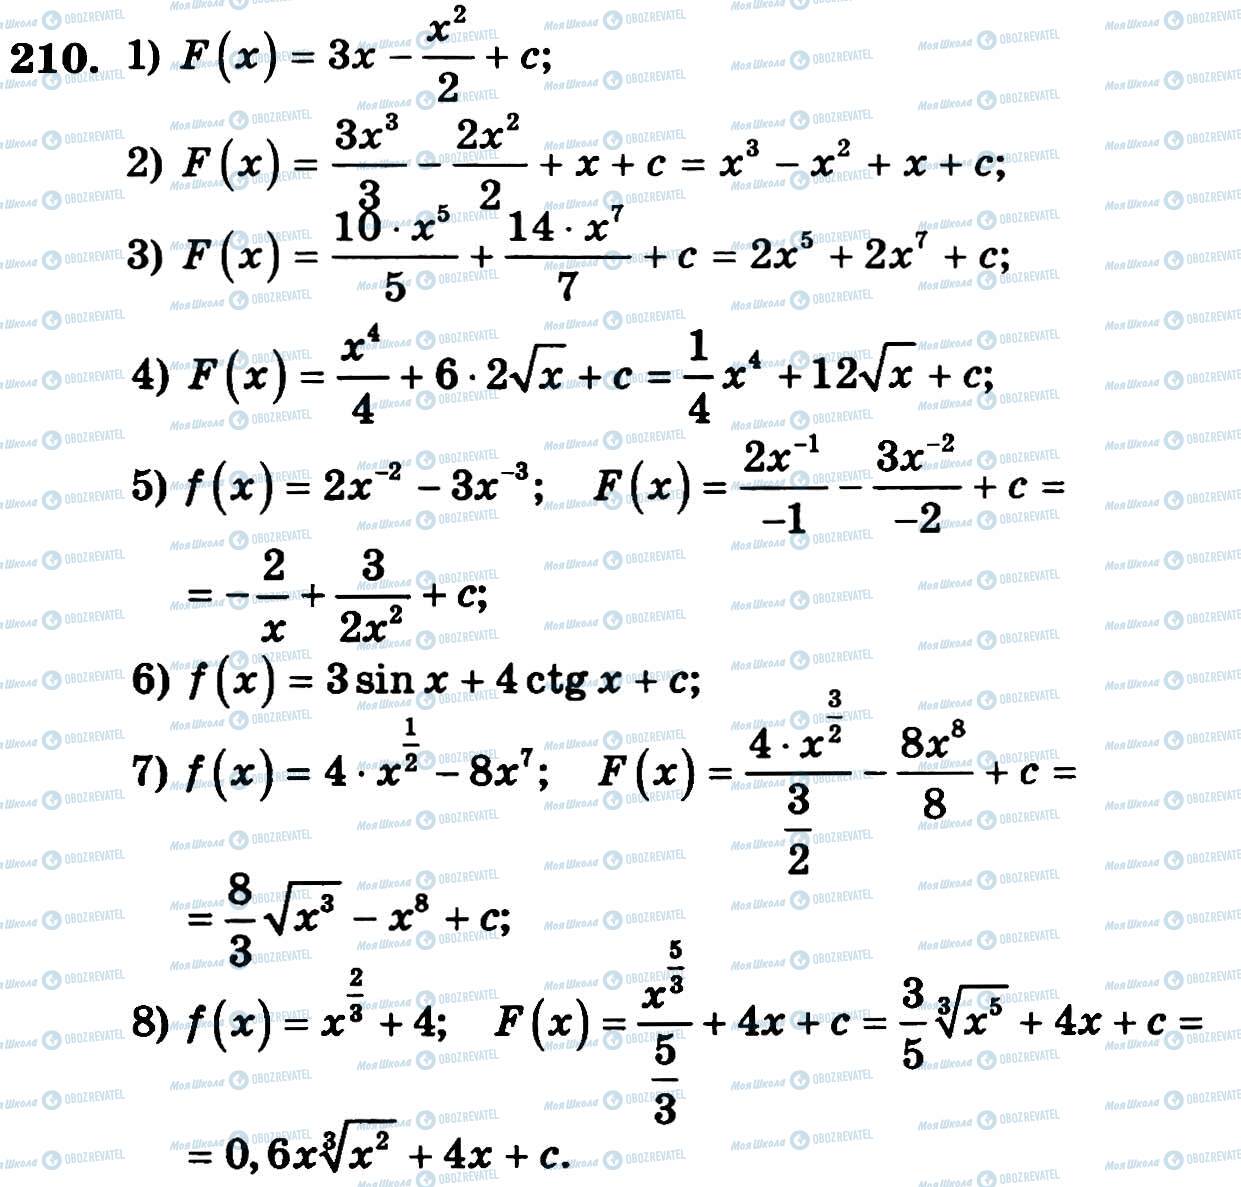 210. 1) F(x) = 3x − x²/2 + c;
2) F(x) = 3x³/3 − 2x²/2 + x + c = x³ − x² + x + c;
3) F(x) = 10 · x⁵/5 + 14 · x⁷/7 + c = 2x⁵ + 2x⁷ + c;
4) F(x) = x⁴/4 + 6 · 2√x + c = 1/4 x⁴ + 12√x + c;
5) f(x) = 2x⁻² − 3x⁻³; F(x) = 2x⁻¹/−1 − 3x⁻²/−2 + c =
= −2/x + 3/2x² + c;
6) f(x) = 3 sin x + 4 ctg x + c;
7) f(x) = 4 · x^(1/2) − 8x⁷; F(x) = 4 · x^(3/2)/(3/2) − 8x⁸/8 + c =
= 8/3 √x³ − x⁸ + c;
8) f(x) = x^(2/3) + 4; F(x) = x^(5/3)/(5/3) + 4x + c = 3/5 ∛x⁵ + 4x + c =
= 0,6x∛x² + 4x + c.
Моя Школа OBOZREVATEL